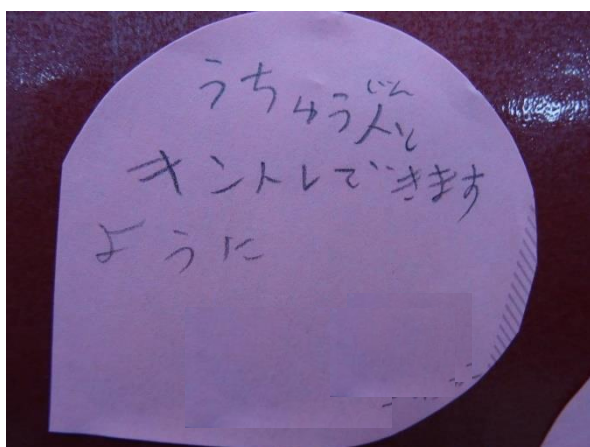 うちゅう人と
キントレできます
ように